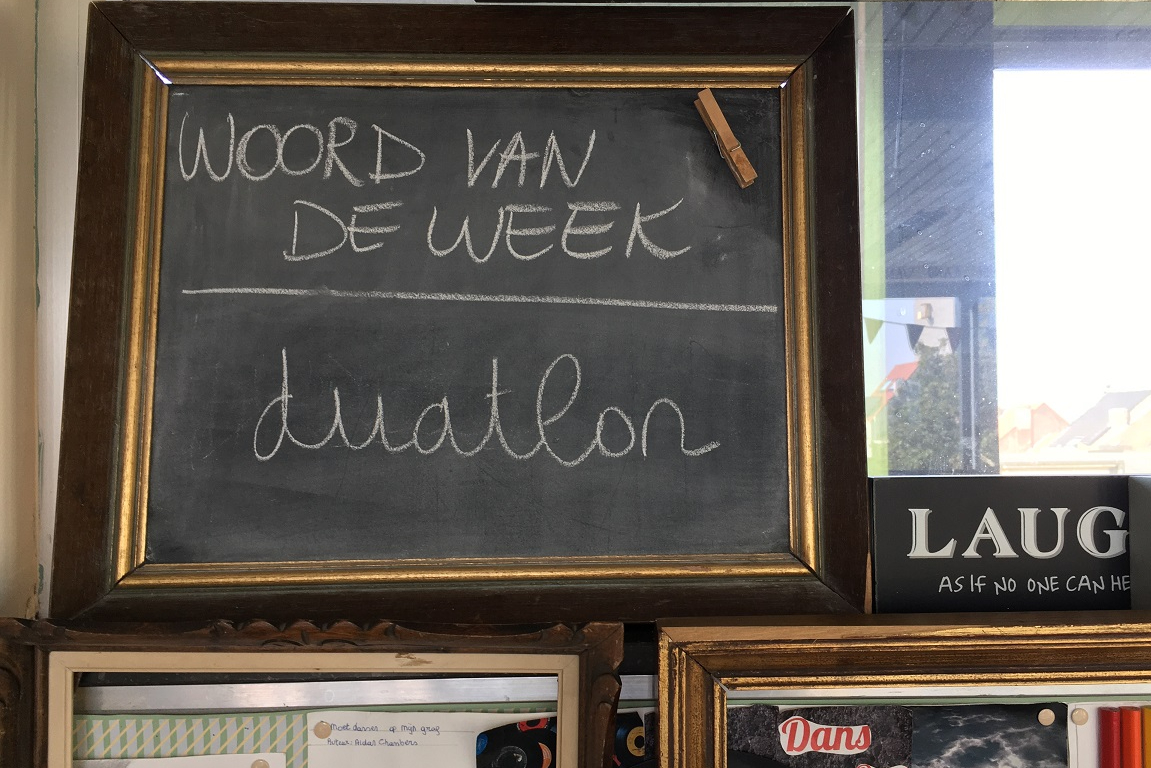 WOORD VAN
DE WEEK
duatlon
LAUG
AS IF NO ONE CAN HE
Moet dansen op mijn graf
Auteur: Aidan Chambers
Dans